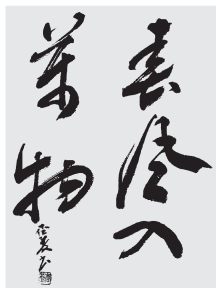 春風入
萬物